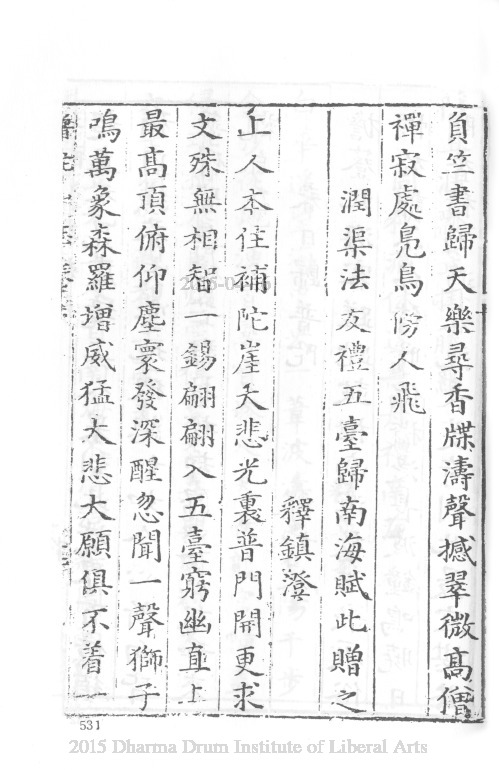 負竺書歸天樂尋香牒濤聲撼翠微高僧
禪寂處鳧鳥傍人飛
潤渠法友禮五臺歸南海賦此贈之
釋鎮澄
上人本住補陀崖大悲光裏普門開更求
文殊無相智一錫翩翩入五臺窮幽直上
最髙頂俯仰塵寰發深醒忽聞一聲獅子
鳴萬象森羅增威猛大悲大願俱不着一
531
2015 Dharma Drum Institute of Liberal Arts